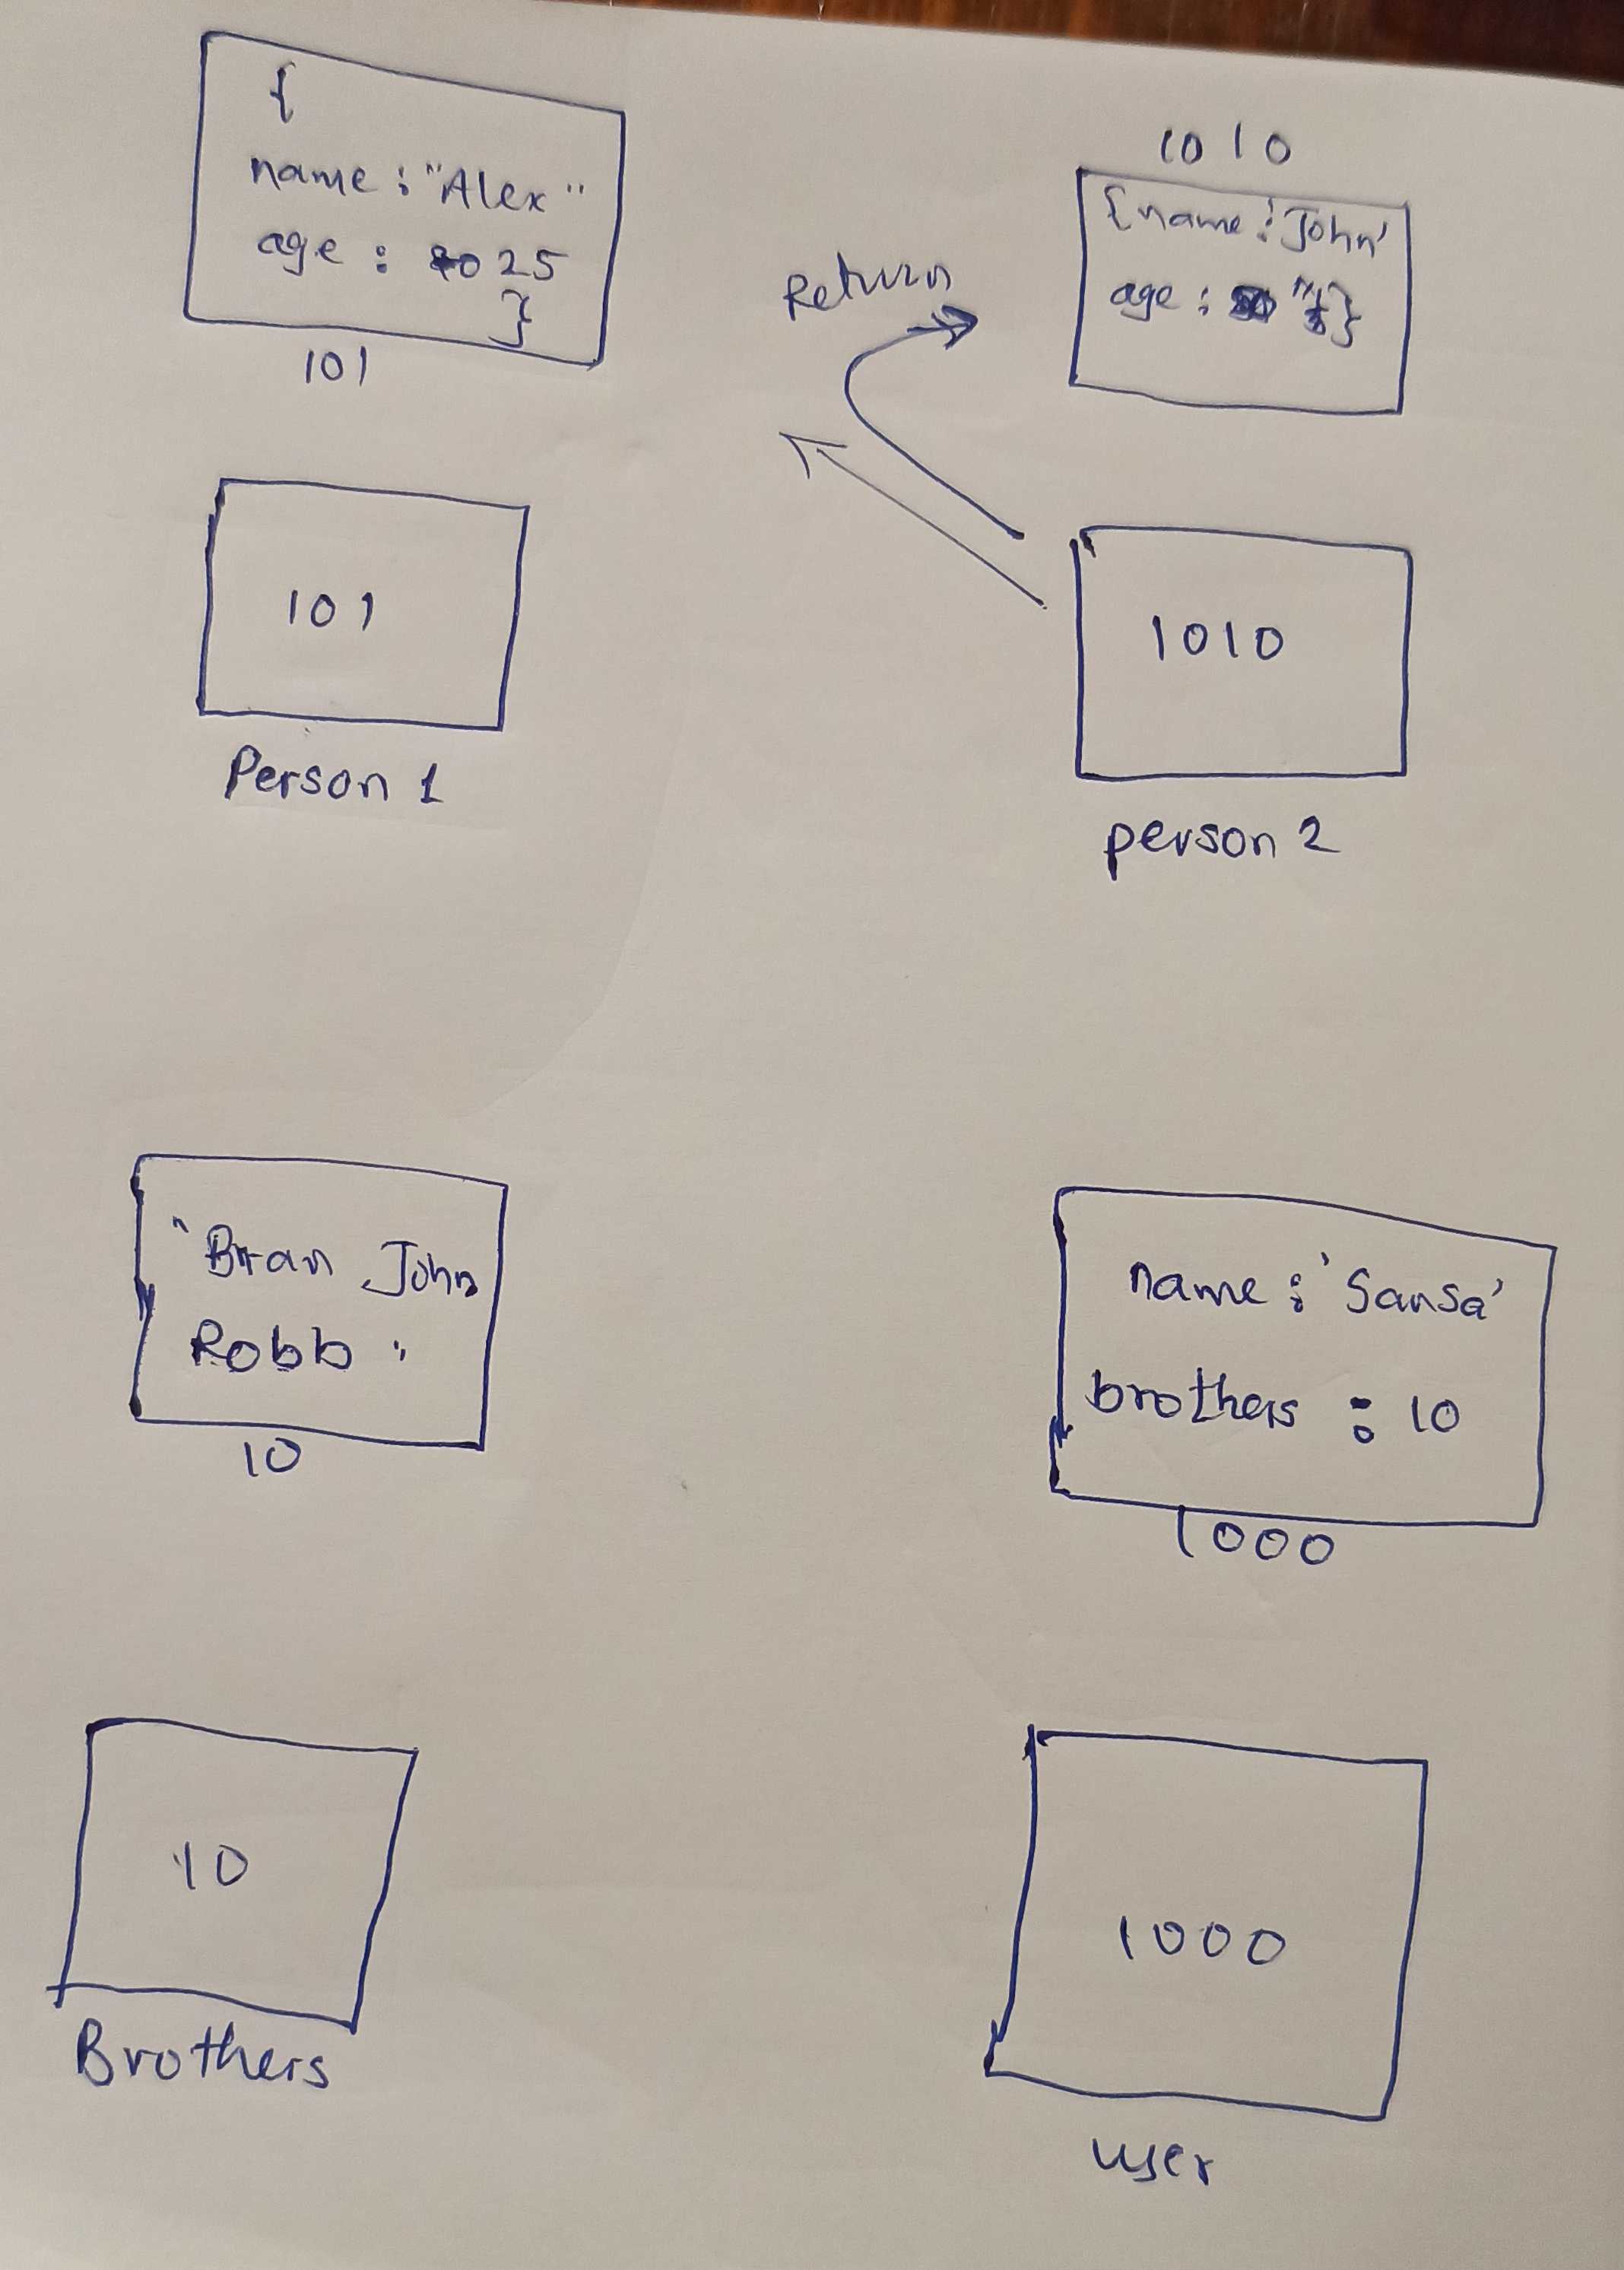 {
name : "Alex"
age : 25
}
101
1010
{name : 'John'
age : }
Return
101
1010
Person 1
person 2
"Bran John
Robb "
10
name : 'Sansa'
brothers : 10
1000
10
1000
Brothers
user